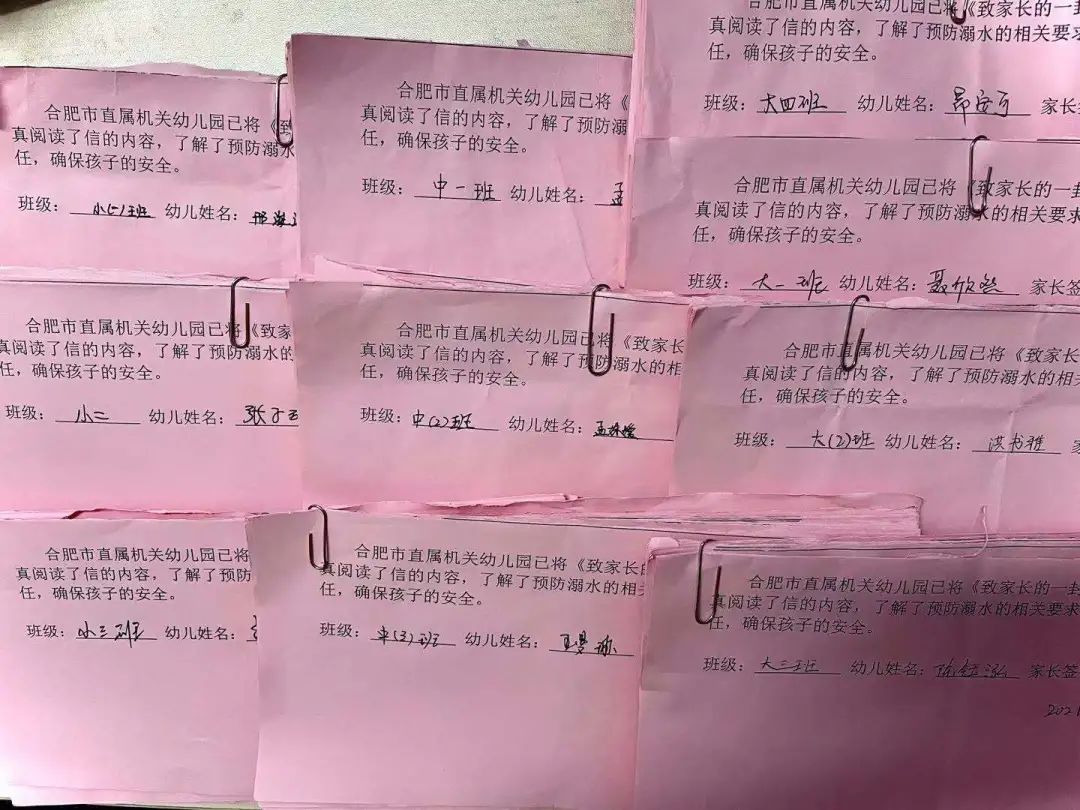 合肥市直属机关幼儿园已将《致
真阅读了信的内容，了解了预防溺水
任，确保孩子的安全。
班级：小(一)班 幼儿姓名：
合肥市直属机关幼儿园已将《
真阅读了信的内容，了解了预防溺
任，确保孩子的安全。
班级：中一班 幼儿姓名：孟
合肥市直属机关幼儿园已将《致家长的一封
真阅读了信的内容，了解了预防溺水的相关要求
任，确保孩子的安全。
班级：大四班 幼儿姓名： 家长
合肥市直属机关幼儿园已将《致家长的一封
真阅读了信的内容，了解了预防溺水的相关要求
任，确保孩子的安全。
班级：大一班 幼儿姓名：聂欣然 家长签
合肥市直属机关幼儿园已将《致家
真阅读了信的内容，了解了预防溺水的
任，确保孩子的安全。
班级：小二 幼儿姓名：张子
合肥市直属机关幼儿园已将《致家长
真阅读了信的内容，了解了预防溺水的相
任，确保孩子的安全。
班级：中(2)班 幼儿姓名：孟
合肥市直属机关幼儿园已将《致家长
真阅读了信的内容，了解了预防溺水的相关
任，确保孩子的安全。
班级：大(2)班 幼儿姓名：洪书雅
合肥市直属机关幼儿园已将
真阅读了信的内容，了解了预防
任，确保孩子的安全。
班级：小三班 幼儿姓名：
合肥市直属机关幼儿园已将《致家长的
真阅读了信的内容，了解了预防溺水的相关
任，确保孩子的安全。
班级：中(3)班 幼儿姓名：
合肥市直属机关幼儿园已将《致家长的一封
真阅读了信的内容，了解了预防溺水的相关要求
任，确保孩子的安全。
班级：大三班 幼儿姓名： 家长签
2021